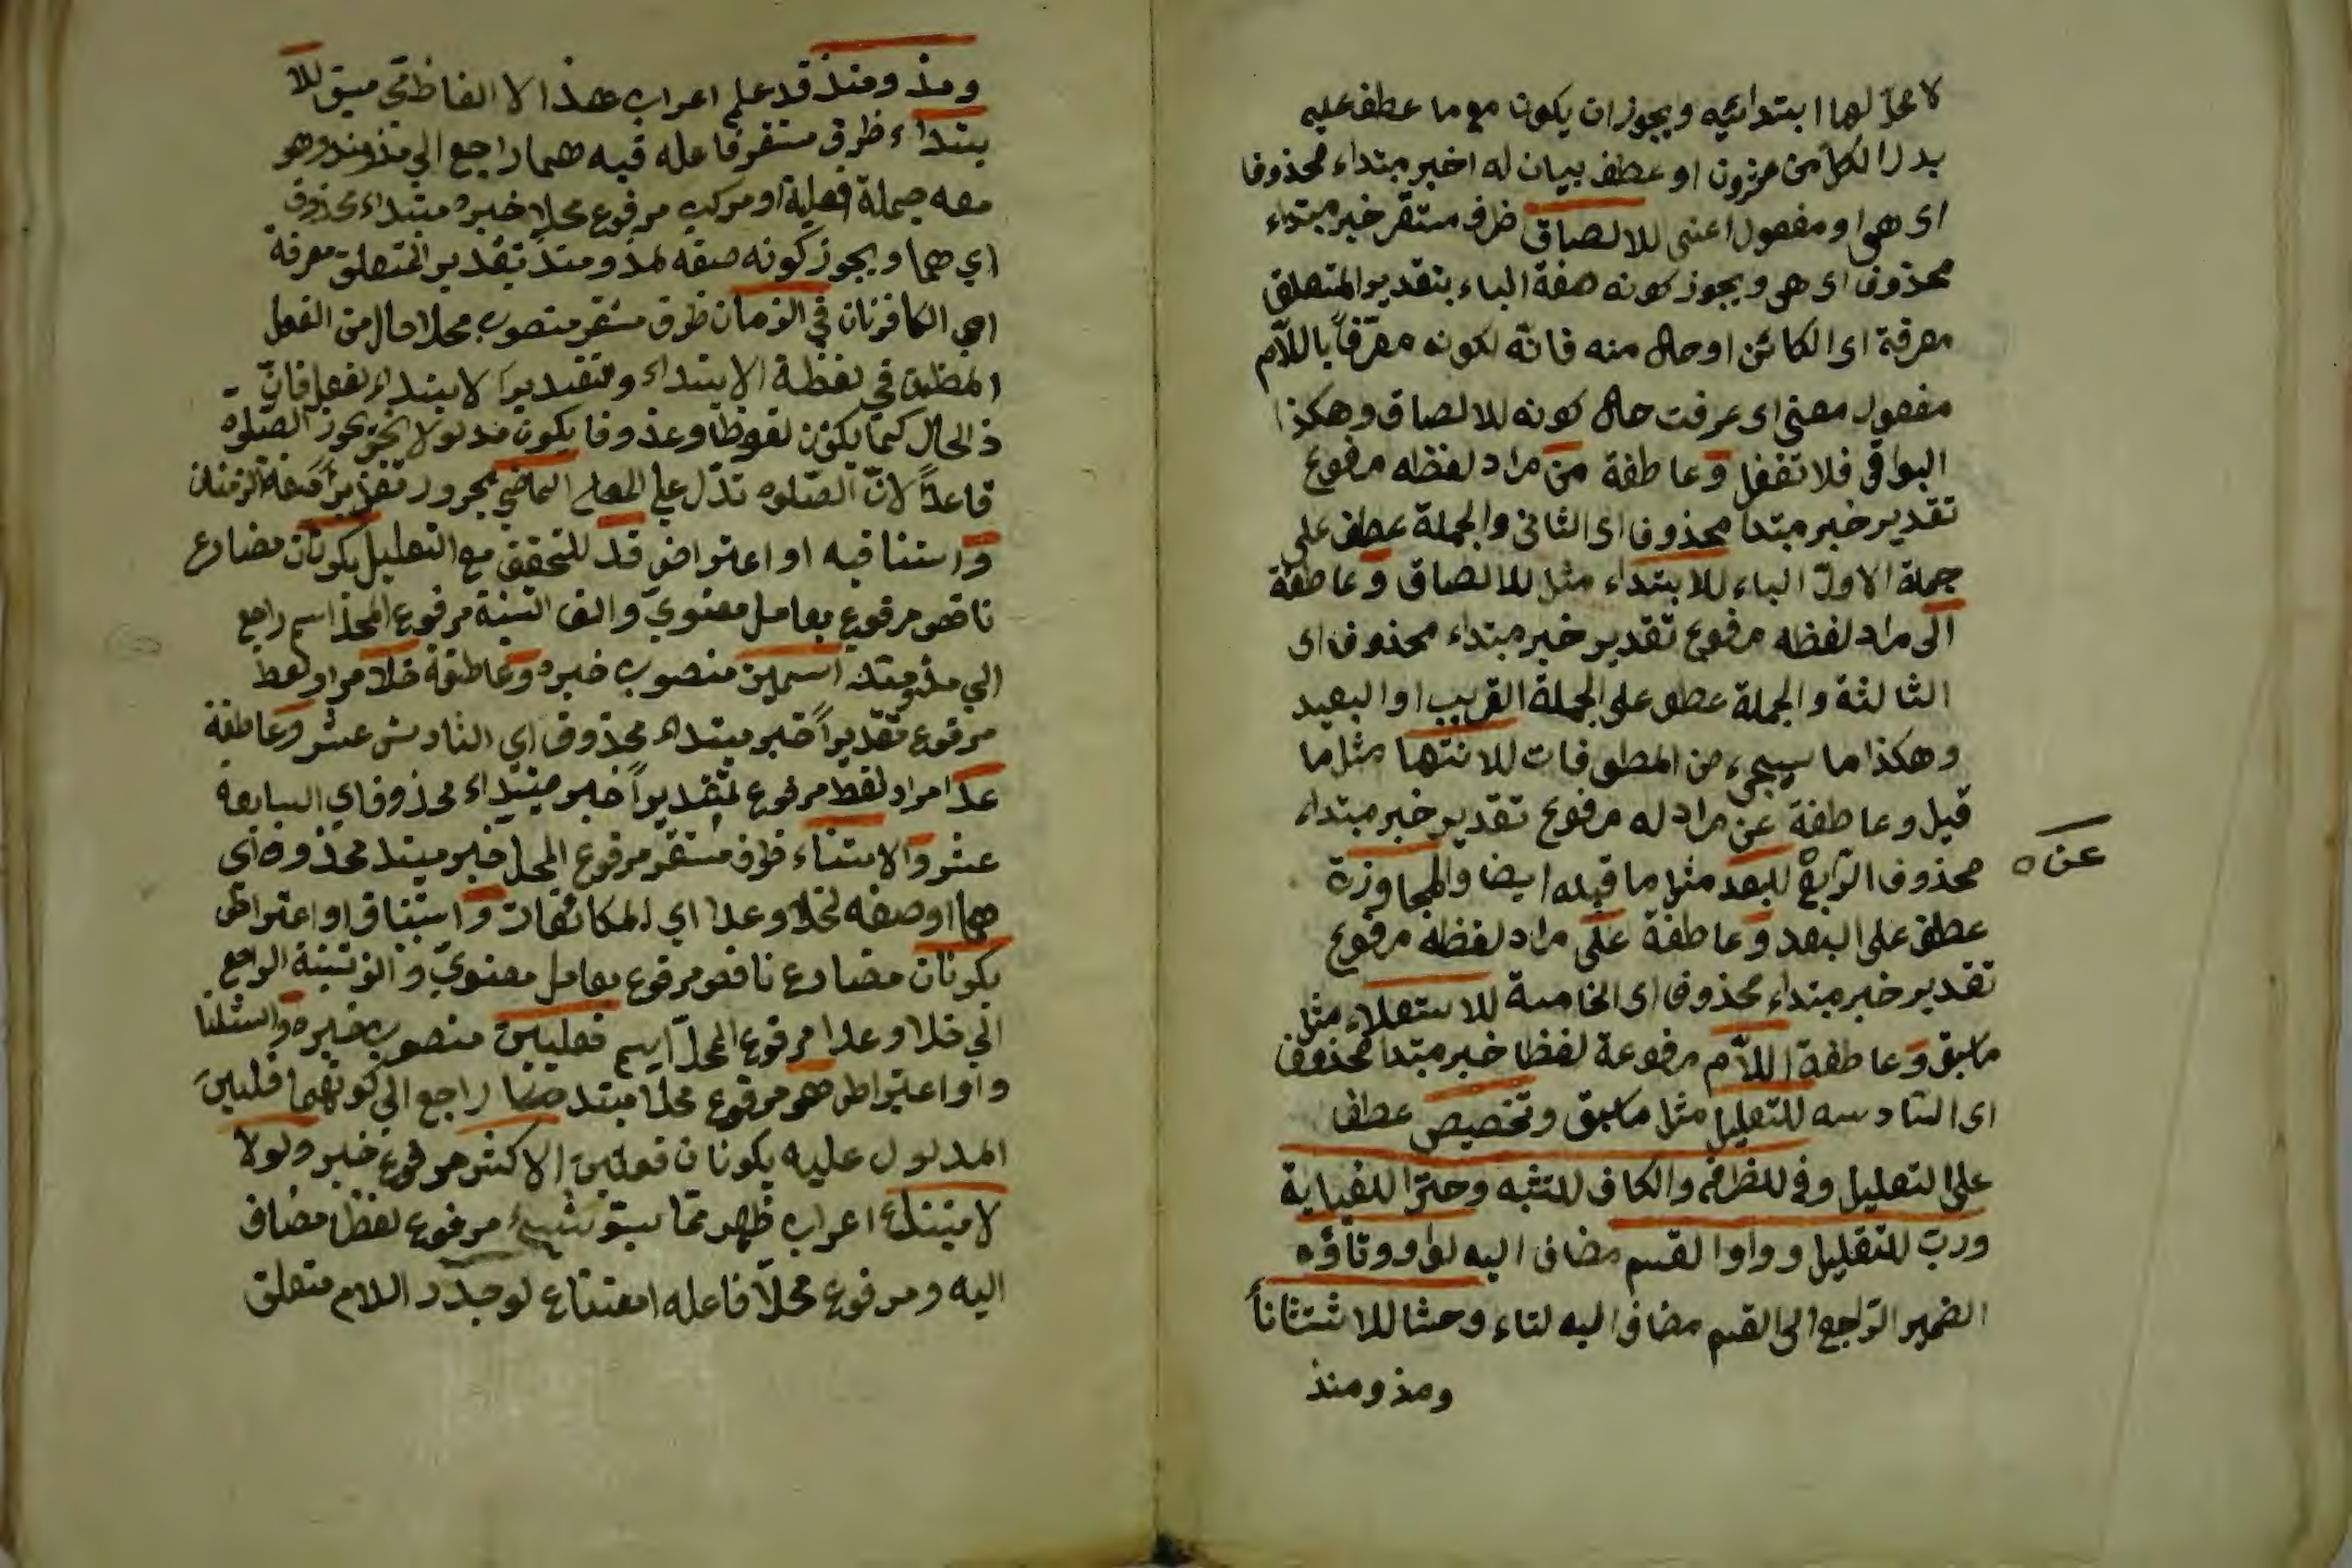 لا محل لها ابتدائيه ويجوز ان يكون مع ما عطف عليه
بدل الكل من عشرون او عطف بيان له اخبر مبتداء محذوفا
اى هى او مفعول اعنى للالصاق ظرف مستقر خبر مبتداء
محذوف اى هى ويجوز كونه صفة الباء بتقدير المتعلق
معرفة اى الكائن او حال منه فانّه لكونه معرّفاً باللّام
مفعول معنى اى عرفت حال كونه للالصاق وهكذا
البواقى فلا تغفل وعاطفة من مراد لفظه مرفوع
تقدير خبر مبتدا محذوف اى الثانى والجملة عطف على
جملة الاولى الباء للابتداء مثل للالصاق وعاطفة
الى مراد لفظه مرفوع تقدير خبر مبتداء محذوف اى
الثالثة والجملة عطف على الجملة القريب او البعيد
وهكذا ما سيجىء من المعطوفات للانتها مثل ما
قبل وعاطفة عن مراد له مرفوع تقدير خبر مبتداء
عن ه
محذوف الرّابع للبعد مثل ما قبله ايضا والمجاوزة
عطف على البعد وعاطفة على مراد لفظه مرفوع
تقدير خبر مبتداء محذوف اى الخامسة للاستعلاء مثل
ما سبق وعاطفة اللّام مرفوعة لفظا خبر مبتدا محذوف
اى السّادسه للتعليل مثل ما سبق وتخصيص عطف
على التعليل وفى للظرفه والكاف للتشبه وحتى للغاية
وربّ للتقليل وواو القسم مضاف اليه لواو وتاؤه
الضمير الرّاجع الى القسم مضاف اليه لتاء وحشا للاستثناءً
ومذ ومنذ
ومذ ومنذ قد علم اعراب هذا الالفاظ فى ميق للا
بتداء ظرف مستقر فاعله فيه هما راجع الى مذ ومنذ وهو
معه جملة فعلية او مركب مرفوع محلا خبر مبتداء محذوف
اي هما ويجوز كونه صفه لمذ ومنذ بتقدير المتعلق معرفة
اى الكافرنان في الزمان ظرف مستقر منصوب محلا حال من الفعل
فى لفظة الابتداء وتقدير الابتداء لفعل فانّ
ذ الحال كما يكون لفوظا وعذوفا يكون مدلولا يجوز الصّلوه
قاعداً لانّ الصّلوه تدّل على المصلى الماضي مجرور تقديراً
واستنافيه او اعتراض قد للتحقيق مع التعليل يكونان مضارع
ناقص مرفوع بعامل معنوىّ والف التثنية مرفوع المحذ اسم راجع
الي مذ ومنذ اسمين منصوب خبره وعاطفة خلا مراد لفظ
مرفوع تقديراً خبر مبتداء محذوف اي السّادس عشر وعاطفة
عدا مراد لفظ مرفوع تقديراً خبر مبتداء محذوف اي السابعة
عشر والاستثناء ظرف مستقر مرفوع المحل خبر مبتد محذوف اى
هما او صفه لخلا وعدا اي المكائفات واستيناق او اعتراض
يكونان مضارع ناقص مرفوع بعامل معنوىّ والف تثنية الراجع
الي خلا وعدا مرفوع المحلّ اسم فعليين منصوب خبره واستثنا
واو اعتراض هو مرفوع محلا مبتد راجع الي كونهما فعليين
المدلول عليه يكونان فعلين الاكثر مرفوع خبر ولولا
لامتناع اعراب ظهر ممّا سبق شيء مرفوع لفظا مضاف
اليه ومرفوع محلّا فاعله امتناع لوجدد اللام متعلق